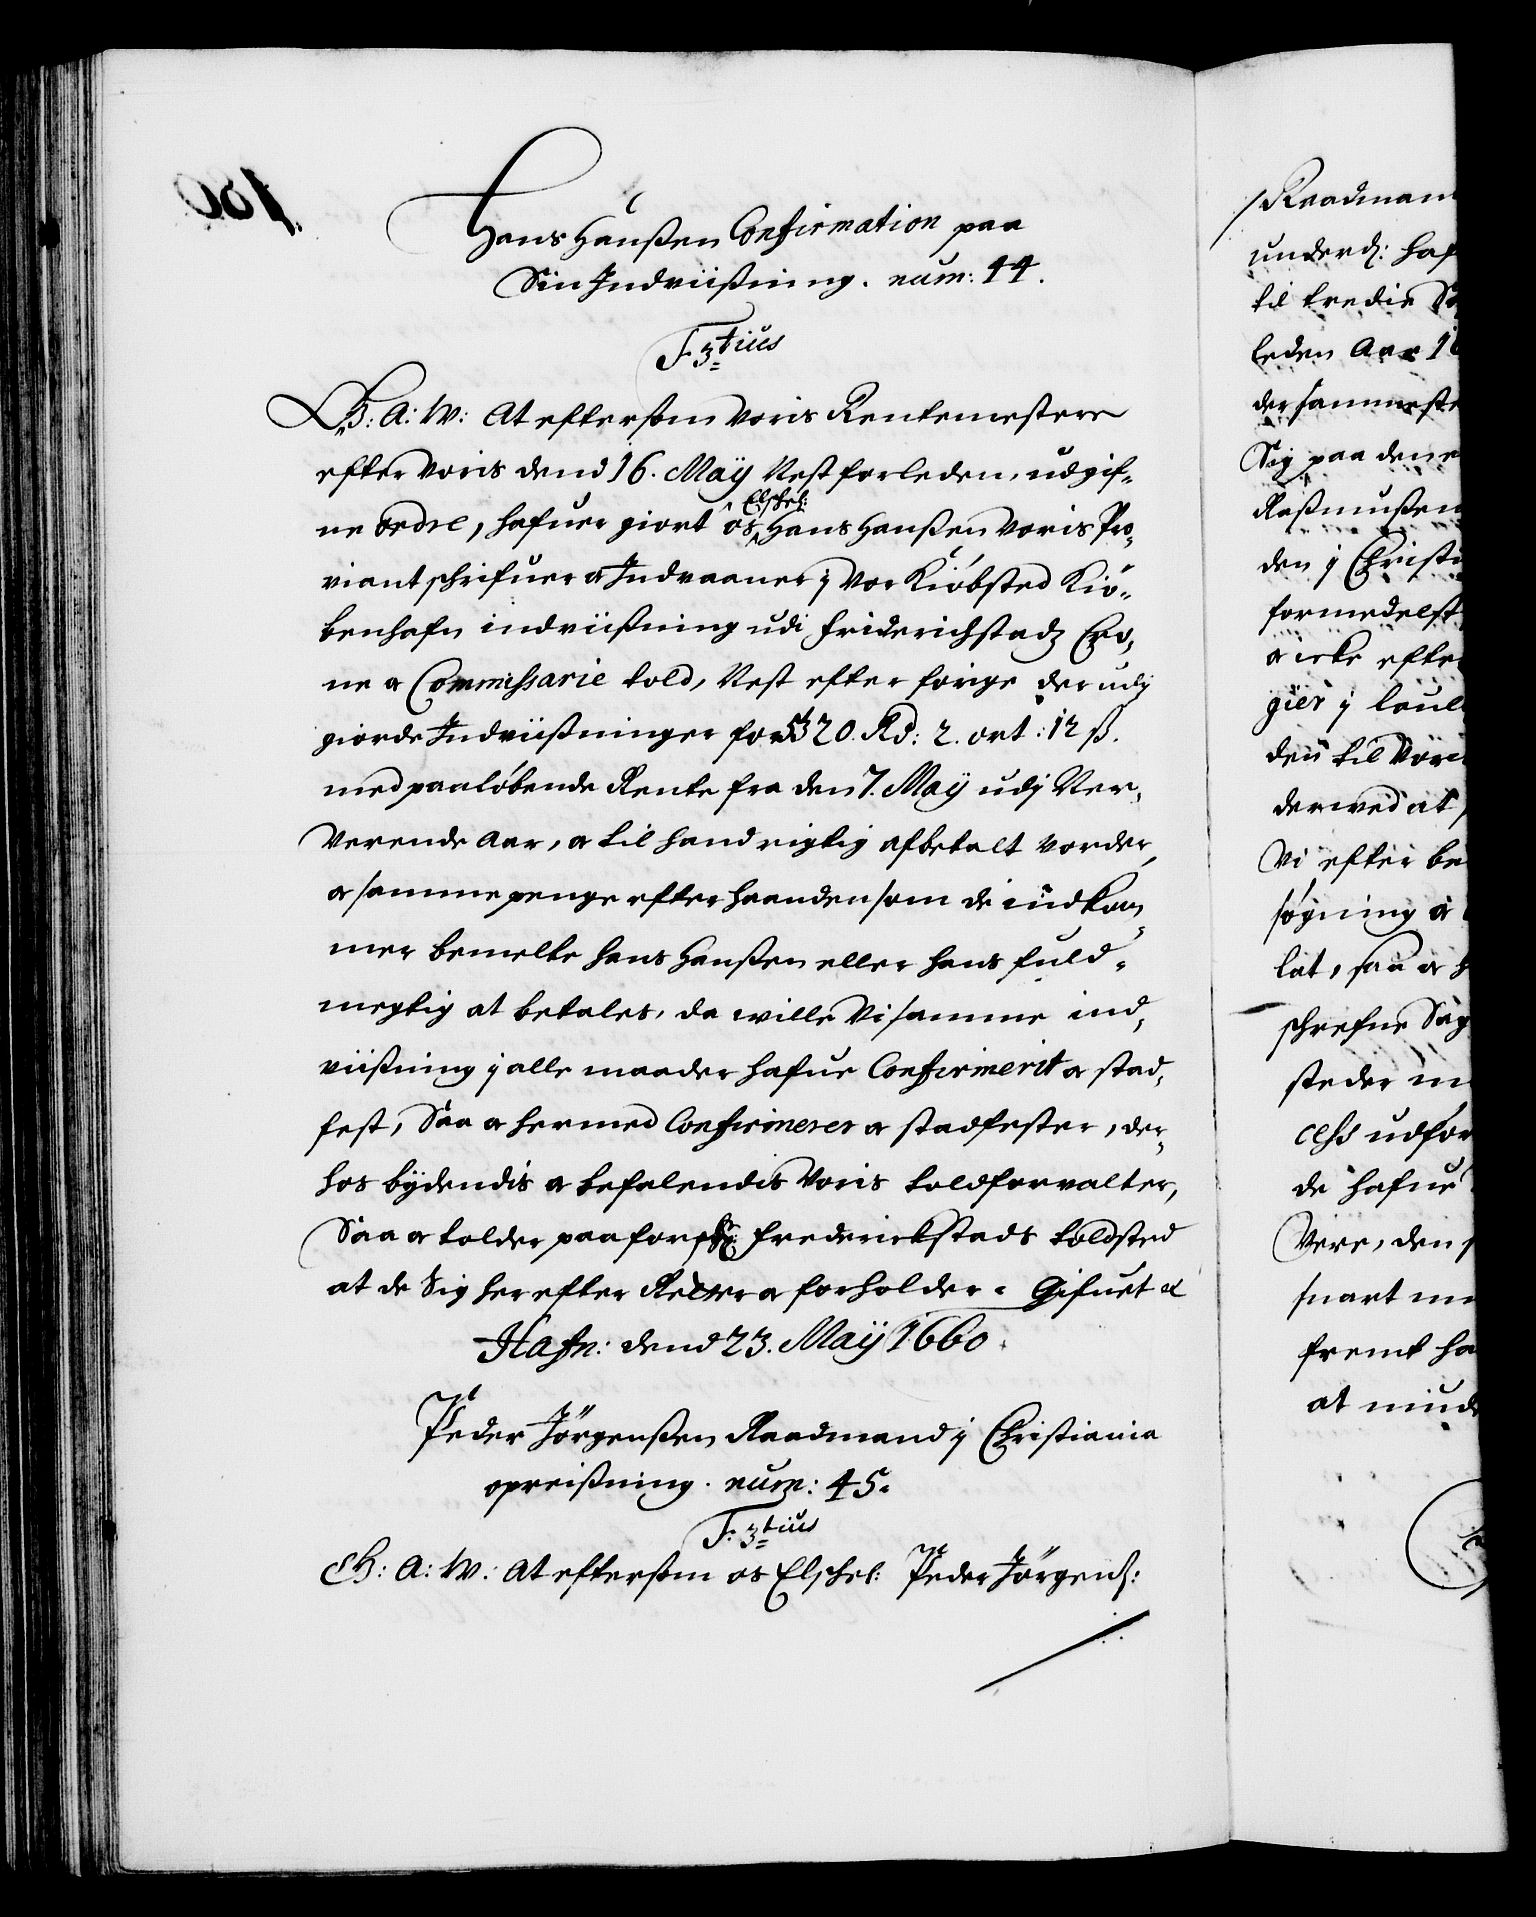 Hans Hanßen Confirmation paa
Sin Indviißning. num: 44.
F. 3tius
G: A: W: At eftersom Voris Rentemestere
efter Voris dend 16. Maÿ Nest forleden, udgif-
ne Ordre, hafuer giort os Elskel: Hans Hanßen Voris Pro-
viantschrifuer og Indvaaner j Vor Kiöbsted Kiö-
benhafn indviißning udi Friderichstadz Cro-
ne og Commissarie told, Nest efter forige der udj
giorde Indviißninger for 5320 Rd: 2. ort: 12 ß.
med paalöbende Rente fra den 7. Maÿ udj Ner-
Verende Aar, og til hand rigtig afbetalt vorder,
og samme penge efterhaanden som de indkom-
mer bemelte Hans Hanßen eller hans fuld-
megtig at betales, da wille Vi samme ind-
viißning j alle maader hafue Confirmerit og stad-
fest, Saa og hermed Confirmerer og stadfester, der-
hos bÿdendis og befalendis Voris toldforvalter,
Saa og tolder paa forschr: Frederickstads toldsted
at de Sig herefter Retter og forholder. Gifuet &
Hafn: dend 23. Maÿ 1660.
Peder Jörgenßen Raadmand j Christiania
opreißning. num: 45.
F. 3tius
G: A: W: At eftersom os Elskel: Peder Jörgens:
Raadmand
underd: haf
til tredie
leden Aar 16
dersammeste
Sig paa denne
Raßmußen
den j Christi
formedelst
og icke efter
gier j
den til Voris
derved at
Vi efter be
søgning og
lat, saa og
schrefne Sag
steder
cess udför
de hafue
Vere, den
snart
fremt ha
at